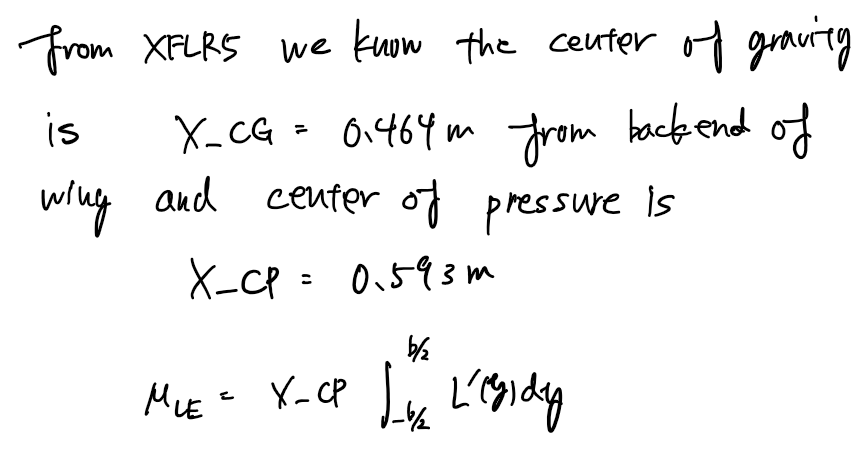 from XFLR5 we know the center of gravity
is X_CG = 0.464 m from backend of
wing and center of pressure is
X_CP = 0.593 m
M_LE = X_CP ∫_{-b/2}^{b/2} L'(y) dy